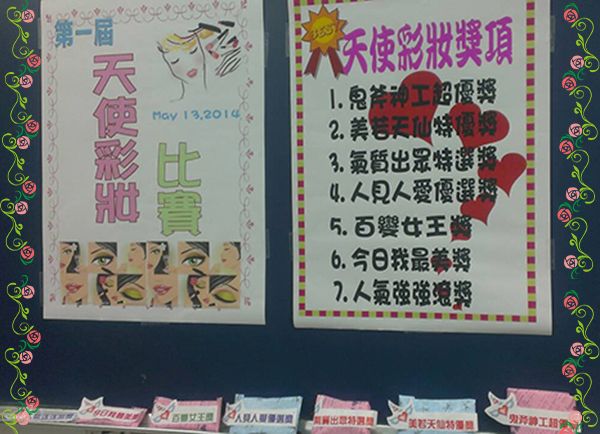 第一屆
天使彩妝
May 13,2014
比賽
BEST
天使彩妝獎項
1. 鬼斧神工超優獎
2. 美若天仙特優獎
3. 氣質出眾特選獎
4. 人見人愛優選獎
5. 百變女王獎
6. 今日我最美獎
7. 人氣強強滾獎
今日我最美獎
百變女王獎
人見人愛優選獎
氣質出眾特選獎
美若天仙特優獎
鬼斧神工超優